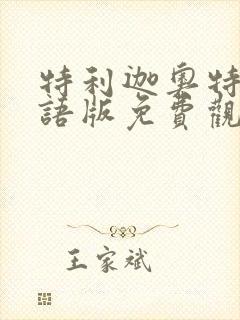 特利迦奧特
語版免費觀
王家斌